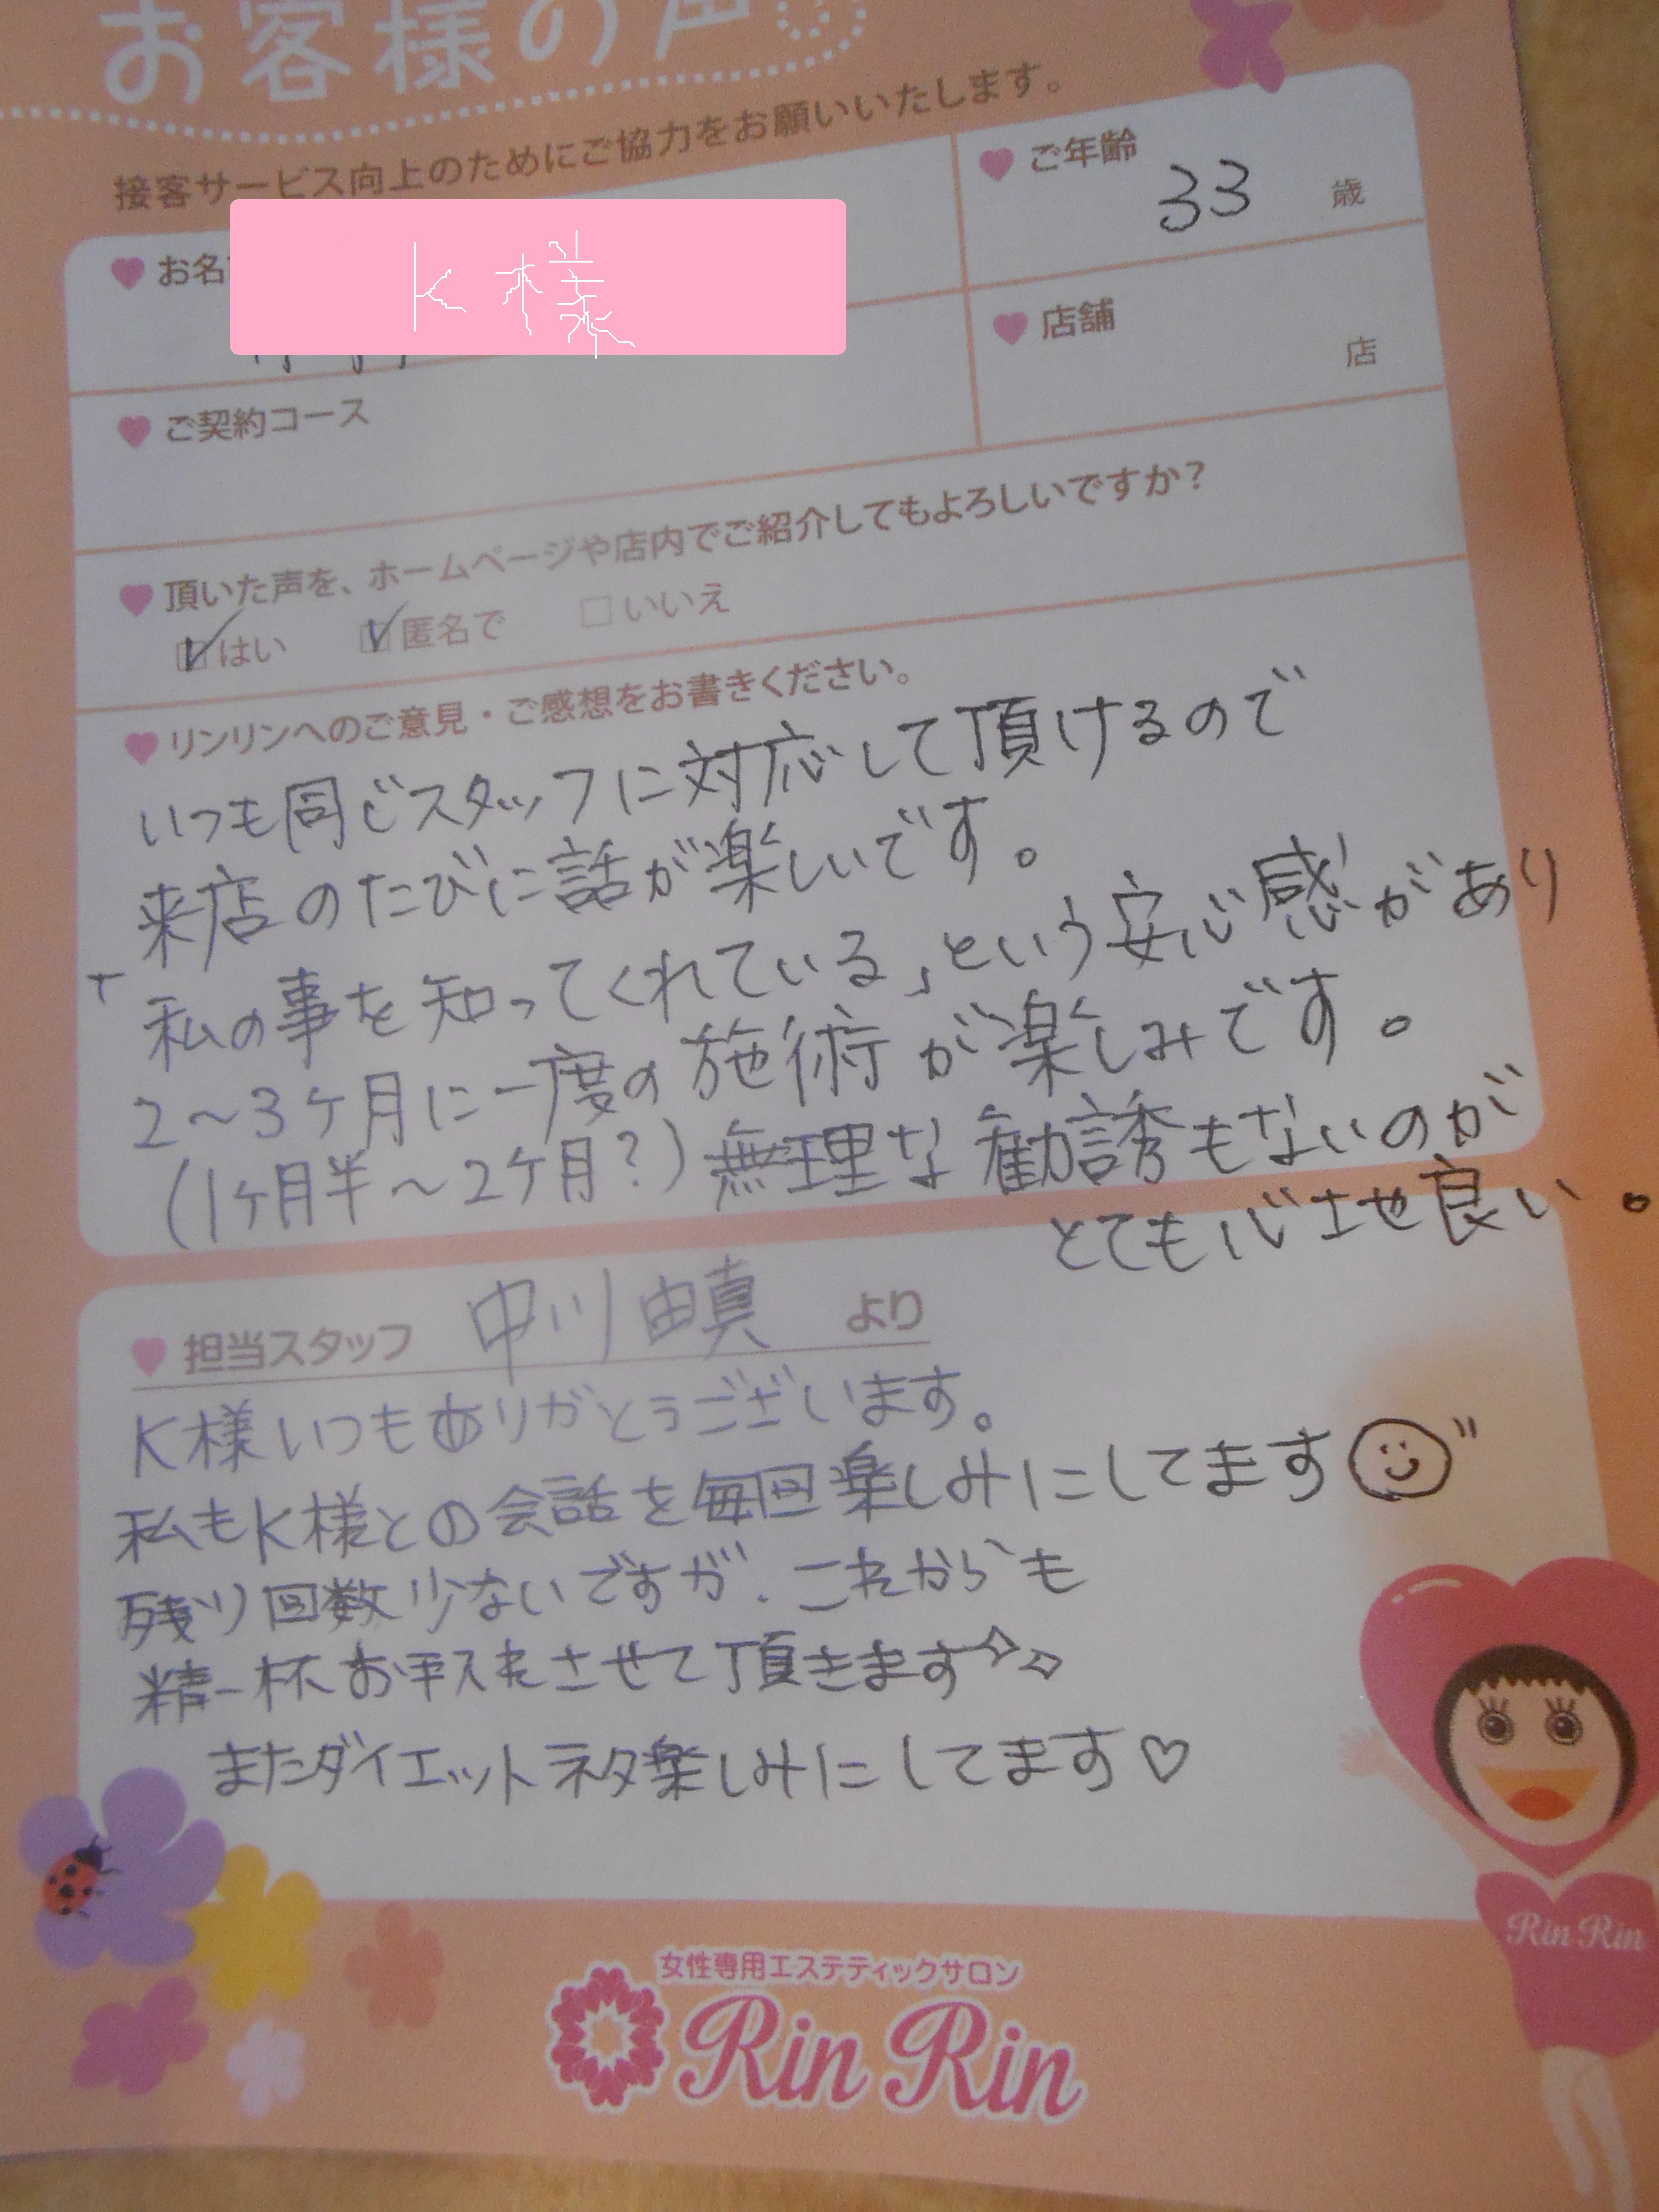 お客様の声
接客サービス向上のためにご協力をお願いいたします。
お名
K様
ご年齢
33 歳
店舗
店
ご契約コース
頂いた声を、ホームページや店内でご紹介してもよろしいですか？
はい 匿名で いいえ
リンリンへのご意見・ご感想をお書きください。
いつも同じスタッフに対応して頂けるので
来店のたびに話が楽しいです。
「私の事を知ってくれている」という安心感があり
2〜3ヶ月に一度の施術が楽しみです。
(1ヶ月半〜2ヶ月?) 無理な勧誘もないのが
とても心地良い。
担当スタッフ 中川由真 より
K様いつもありがとうございます。
私もK様との会話を毎回楽しみにしてます
残り回数少ないですが、これからも
精一杯お手入れさせて頂きます
またダイエットネタ楽しみにしてます♡
Rin Rin
女性専用エステティックサロン
Rin Rin